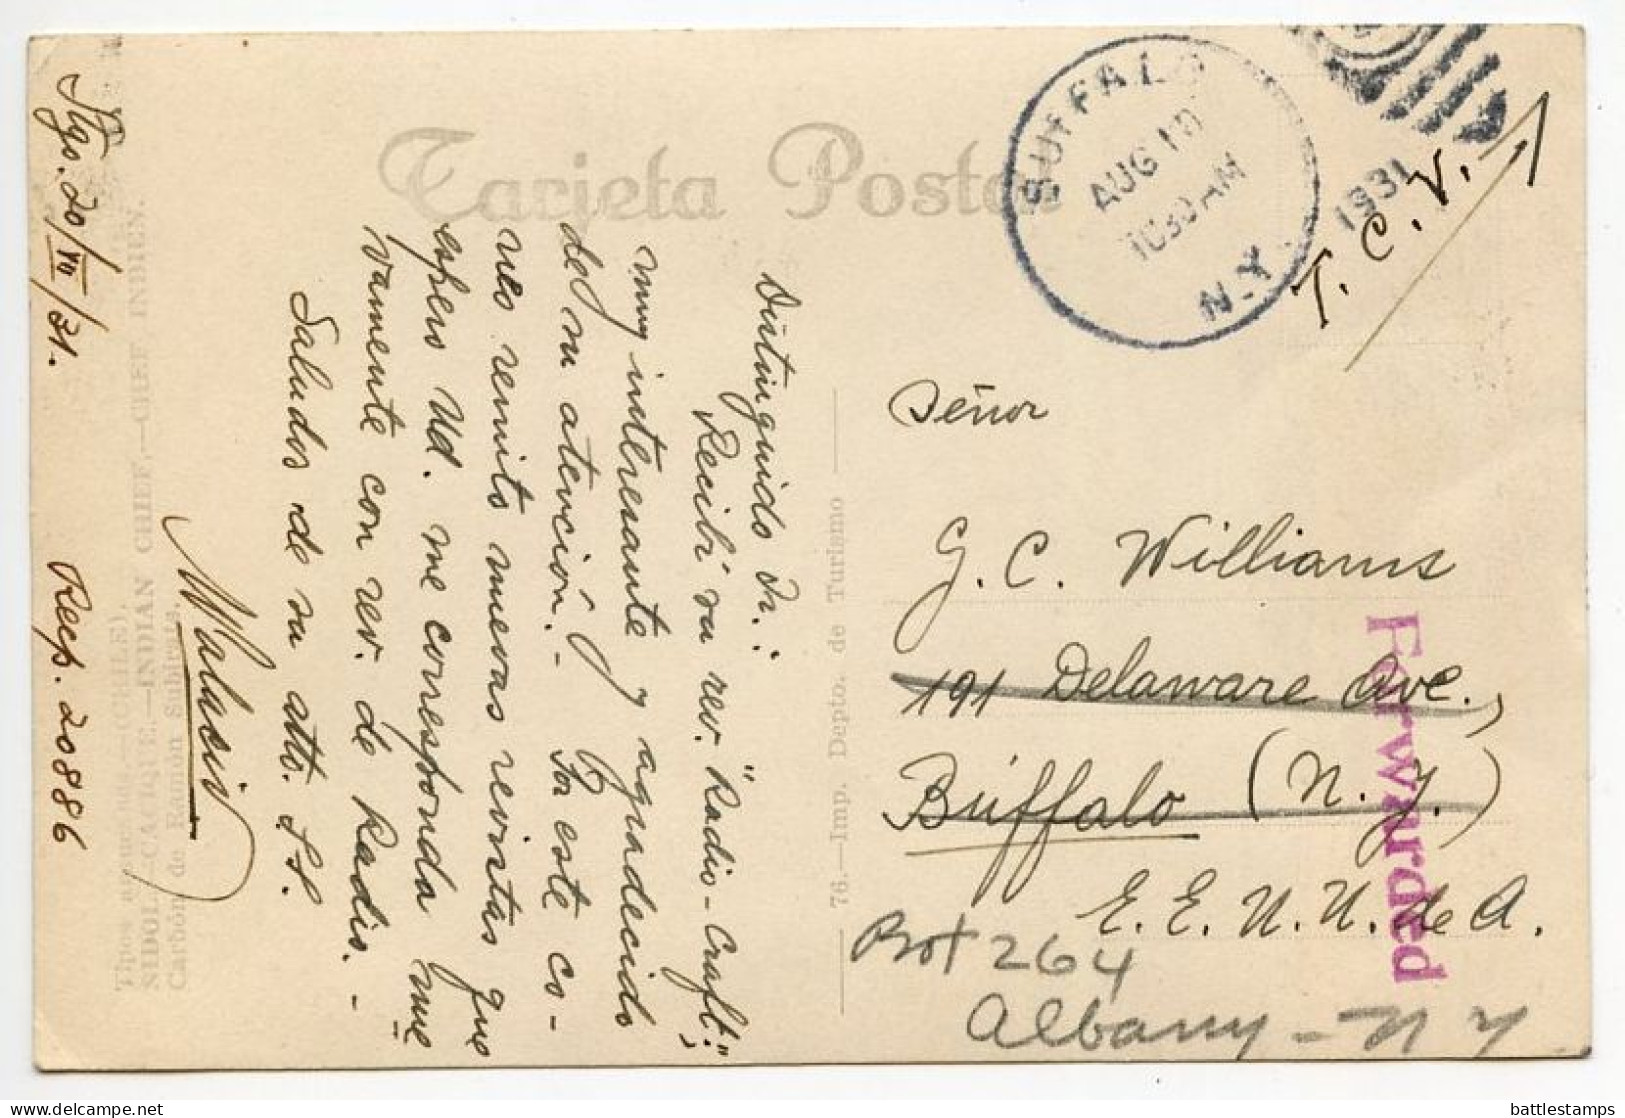 Tarjeta Postal
BUFFALO
AUG 10
1030 AM
N.Y.
1931
T. C. V.
Stgo. 20/VII/31.
Recp. 20886
Distinguido Sr.:
Recibí su rev. "Radio-Craft",
muy interesante y agradecido
de su atención.- Por este co-
rreo remito nuevas revistas que
espero Ud. me corresponda nue
vamente con rev. de Radio.-
Saludos de su atto. SS.
76.—Imp. Depto. de Turismo
(CHILE).
SIDOL.—CACIQUE.—INDIAN CHIEF.—CHEF INDIEN.
Carbón de Ramón Subirats.
Señor
G. C. Williams
191 Delaware Ave.,
Búffalo (N. Y.)
E. E. U. U. de A.
Forwarded
Box 264
Albany - N Y
battlestamps
delcampe.net